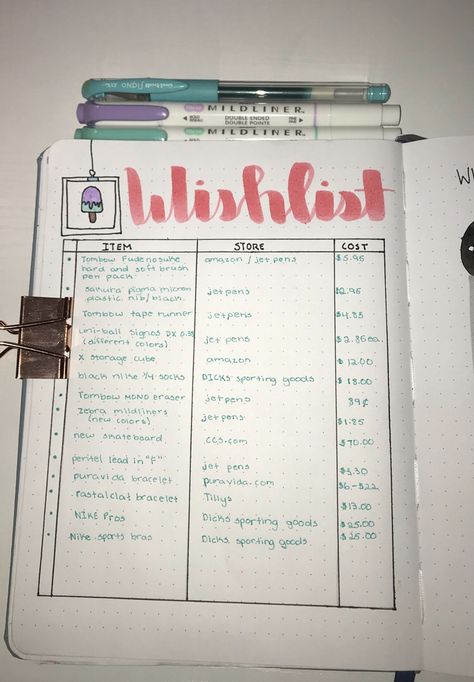 uni-ball SIGNO
MILDLINER™
MILDLINER™
DOUBLE ENDED
DOUBLE POINTE
Wishlist
ITEM STORE COST
Tombow Fudenosuke hard and soft brush pen pack amazon / jetpens $5.95
sakura pigma micron plastic nib/black jetpens $2.95
Tombow tape runner jetpens $4.85
uni-ball Signos DX 0.38 (different colors) jet pens $2.85 ea.
X storage cube amazon $12.00
black nike 3/4 socks DICKS sporting goods $18.00
Tombow MONO eraser jetpens 89¢
zebra mildliners (new colors) jetpens $1.85
new skateboard CCS.com $70.00
pentel lead in "F" jet pens $3.30
puravida bracelet puravida.com $6-$22
rastalclat bracelet Tillys $13.00
NIKE Pros Dicks sporting goods $25.00
Nike sports bras Dicks sporting goods $25.00